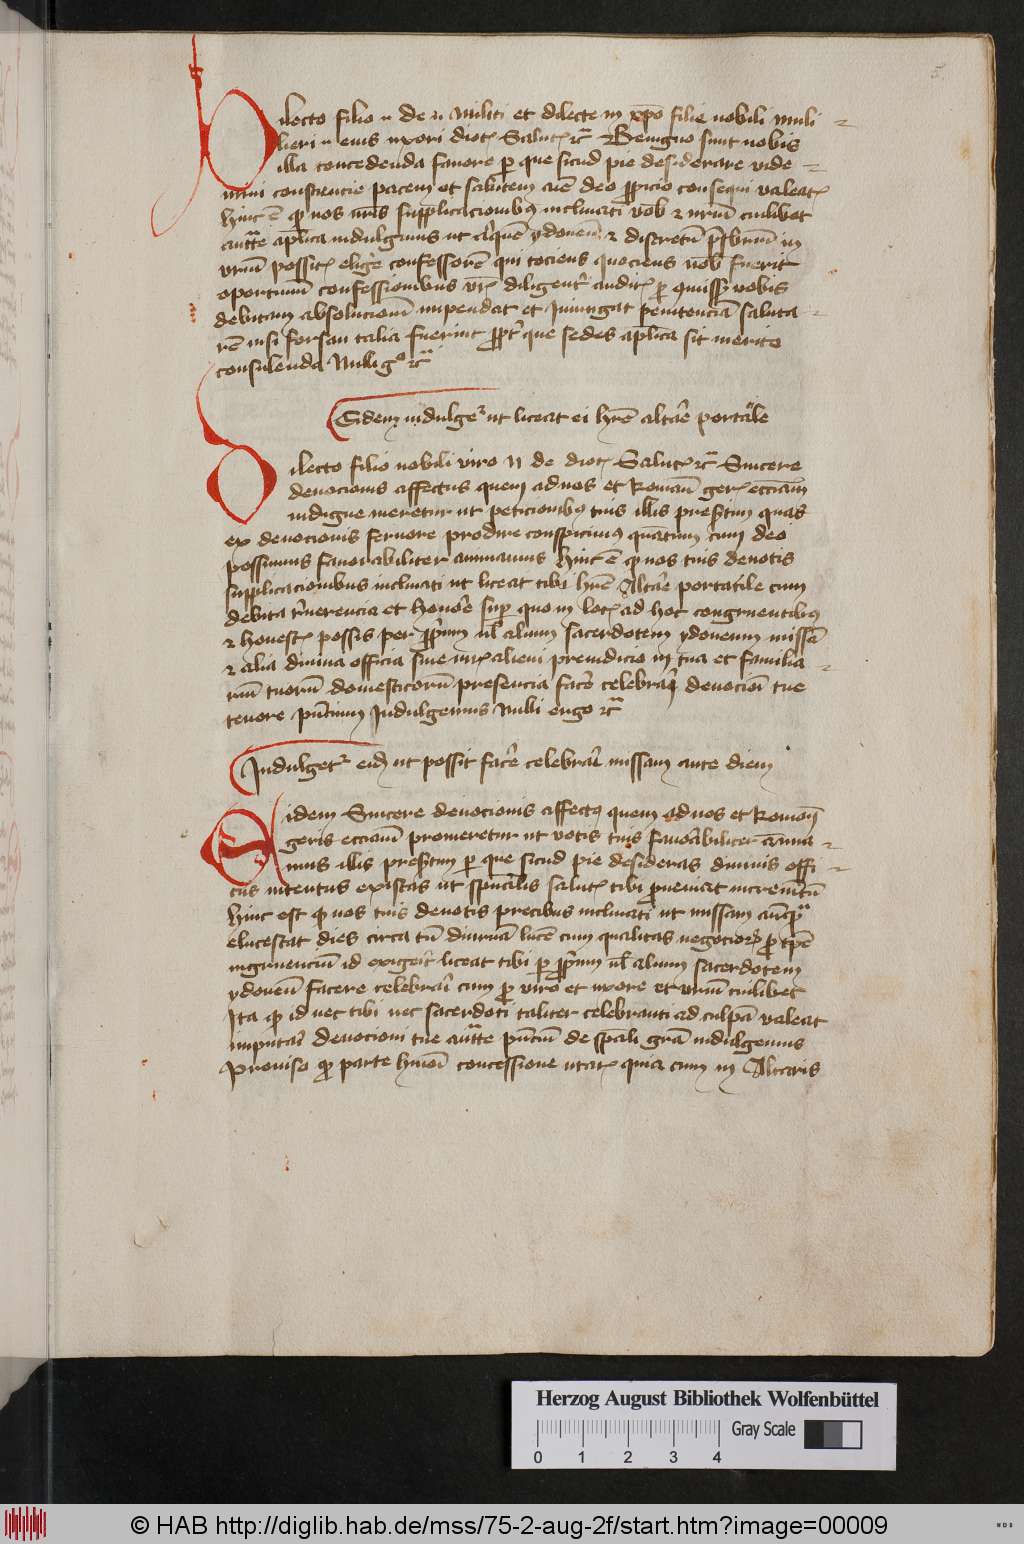 5.
Dilecto filio n de n Militi et dilecte in xpo filie nobili muli
lieri n eius uxori dioc Salut etc Benigno sunt nobis
illa concedenda favore per que sicud pie desiderare vide
mini consciencie pacem et salutem aie deo propicio consequi valeat
hinc e quod nos supplicacionibus inclinati vob et vrum cuilibet
aucte aplica indulgemus ut aliquem ydoneum et discretum in
vrum possit eligere confessorem qui tociens quociens vob fuerit
oportunum confessionibus vris diligenter auditis per qumissis vobis
debitam absolucionem impendat et Iniungat penitenciam saluta
rem nisi forsan talia fuerint propter que sedes aplica sit merito
consulenda Nulli ergo etc
Eidem indulgetur ut liceat ei habere altare portatile
Dilecto filio nobili viro N de dioc Salut etc Sincere
devocionis affectus quem ad nos et Romanam geris ecclesiam
indigne meretur ut peticionibus tuis illis presertim quas
ex devocionis fervore prodire conspicimus quantum cum deo
possumus favorabiliter annuamus hinc e quod nos tuis devotis
supplicacionibus inclinati ut liceat tibi habere Altare portatile cum
debita reverencia et honore super quo in locis ad hoc congruentibus
et honestis possis per proprium vel alium sacerdotem ydoneum missam
et alia divina officia sine iuris alieni preiudicio in tua et familia
rium tuorum domesticorum presencia facere celebrari devocioni tue
tenore presencium Indulgemus Nulli ergo etc
Indulgetur eidem ut possit facere celebrari missam ante diem
Eidem Sincere devocionis affectus quem ad nos et Romanam
geris ecclesiam promeretur ut votis tuis favorabiliter annua
mus illis presertim per que sicud pie desideras divinis offi
ciis intentus existas ut spiritualis salutis tibi proveniat incrementum
hinc est quod nos tuis devotis precibus inclinati ut missam antequam
elucescat dies circa tamen diurnam lucem cum qualitas negociorum pro tempore
ingruencium id exigerit liceat tibi per proprium vel alium sacerdotem
ydoneum facere celebrari cum pro viro et uxore et vrum cuilibet
Ita quod id nec tibi nec sacerdoti taliter celebranti ad culpam valeat
imputari devocioni tue aucte presencium de speciali gracia indulgemus
Proviso quod parte huiusmodi concessione utaris quia cum in Altaris
Herzog August Bibliothek Wolfenbüttel
Gray Scale
0 1 2 3 4
© HAB http://diglib.hab.de/mss/75-2-aug-2f/start.htm?image=00009